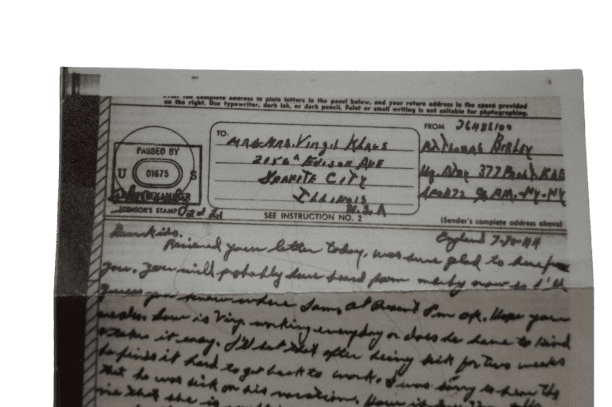 Print the complete address in plain letters in the panel below, and your return address in the space provided
on the right. Use typewriter, dark ink, or dark pencil. Faint or small writing is not suitable for photographing.
PASSED BY
U 01675 S
EXAMINER
CENSOR'S STAMP
TO:
MR & MRS. Virgil Klaus
2150A EDISON AVE
GRANITE CITY
ILLINOIS
U.S.A
SEE INSTRUCTION NO. 2
FROM
36486100
Hq. Btry 377
(Sender's complete address above)
England 7-30-44
Dear Kids.
Received your letter today, was sure glad to hear from
you. You will probably have heard from
guess you know where I am, at Present I'm ok. Hope your
how is Virg. working everyday or does he have to kind
make it easy. I'll bet that after being sick for two weeks
he finds it hard to get back to work. I was sorry to hear
that he was sick on his vacation. How is
me that she is